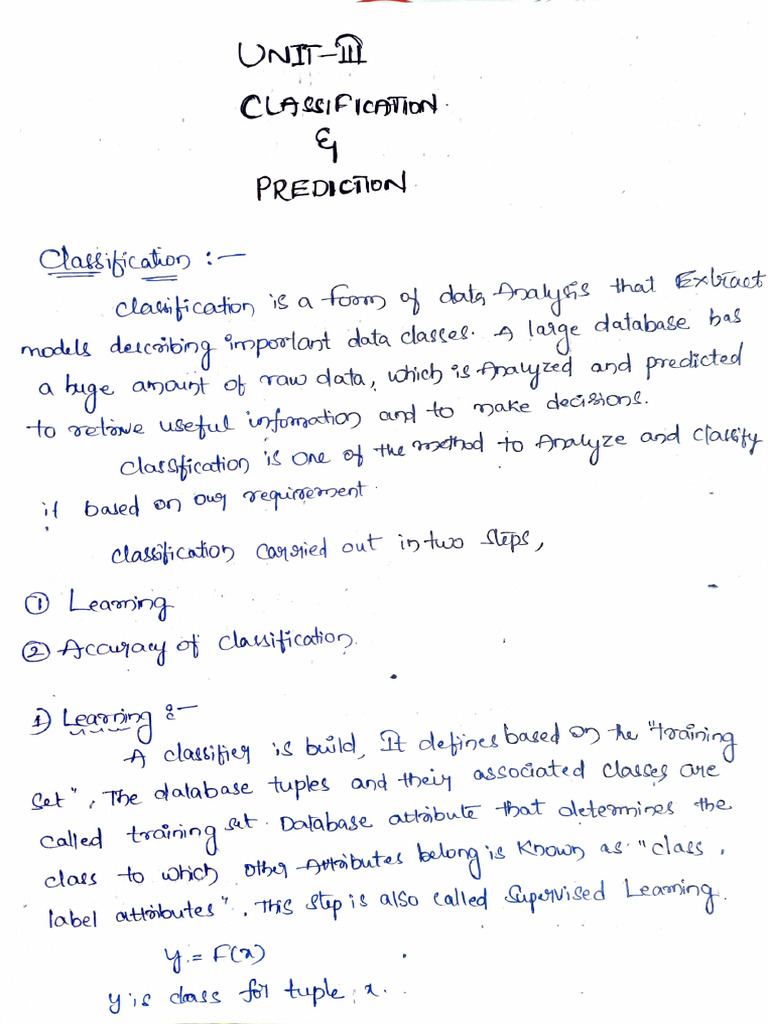 UNIT-III
CLASSIFICATION
&
PREDICTION
Classification :-
Classification is a form of data Analysis that Extract
models describing important data classes. A large database has
a huge amount of raw data, which is Analyzed and predicted
to retrive useful information and to make decisions.
Classification is one of the method to Analyze and Classify
it based on our requirement.
Classification Carried out in two steps,
① Learning
② Accuracy of Classification.
1) Learning :-
A classifier is build, It defines based on the "training
set", The database tuples and their associated classes are
called training set. Database attribute that determines the
class to which other Attributes belong is known as "class
label attributes", This step is also called Supervised Learning.
y = F(x)
y is class for tuple x.